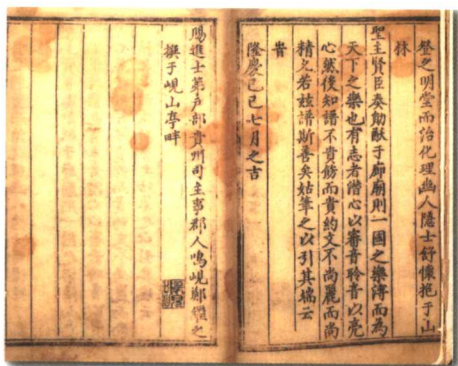 登之明堂而治化理幽人隱士舒懷抱于山
林
聖主賢臣奏勛猷于廊廟則一國之樂溥而為
天下之樂也有志者潛心以審音聆音以亮
心然後知譜不貴餙而貴約文不尚麗而尚
精之若玆譜斯善矣姑筆之以引其端云
旹
隆慶己巳七月之吉
賜進士第戶部貴州司主事郡人鳴峴鄭
撰于峴山亭畔